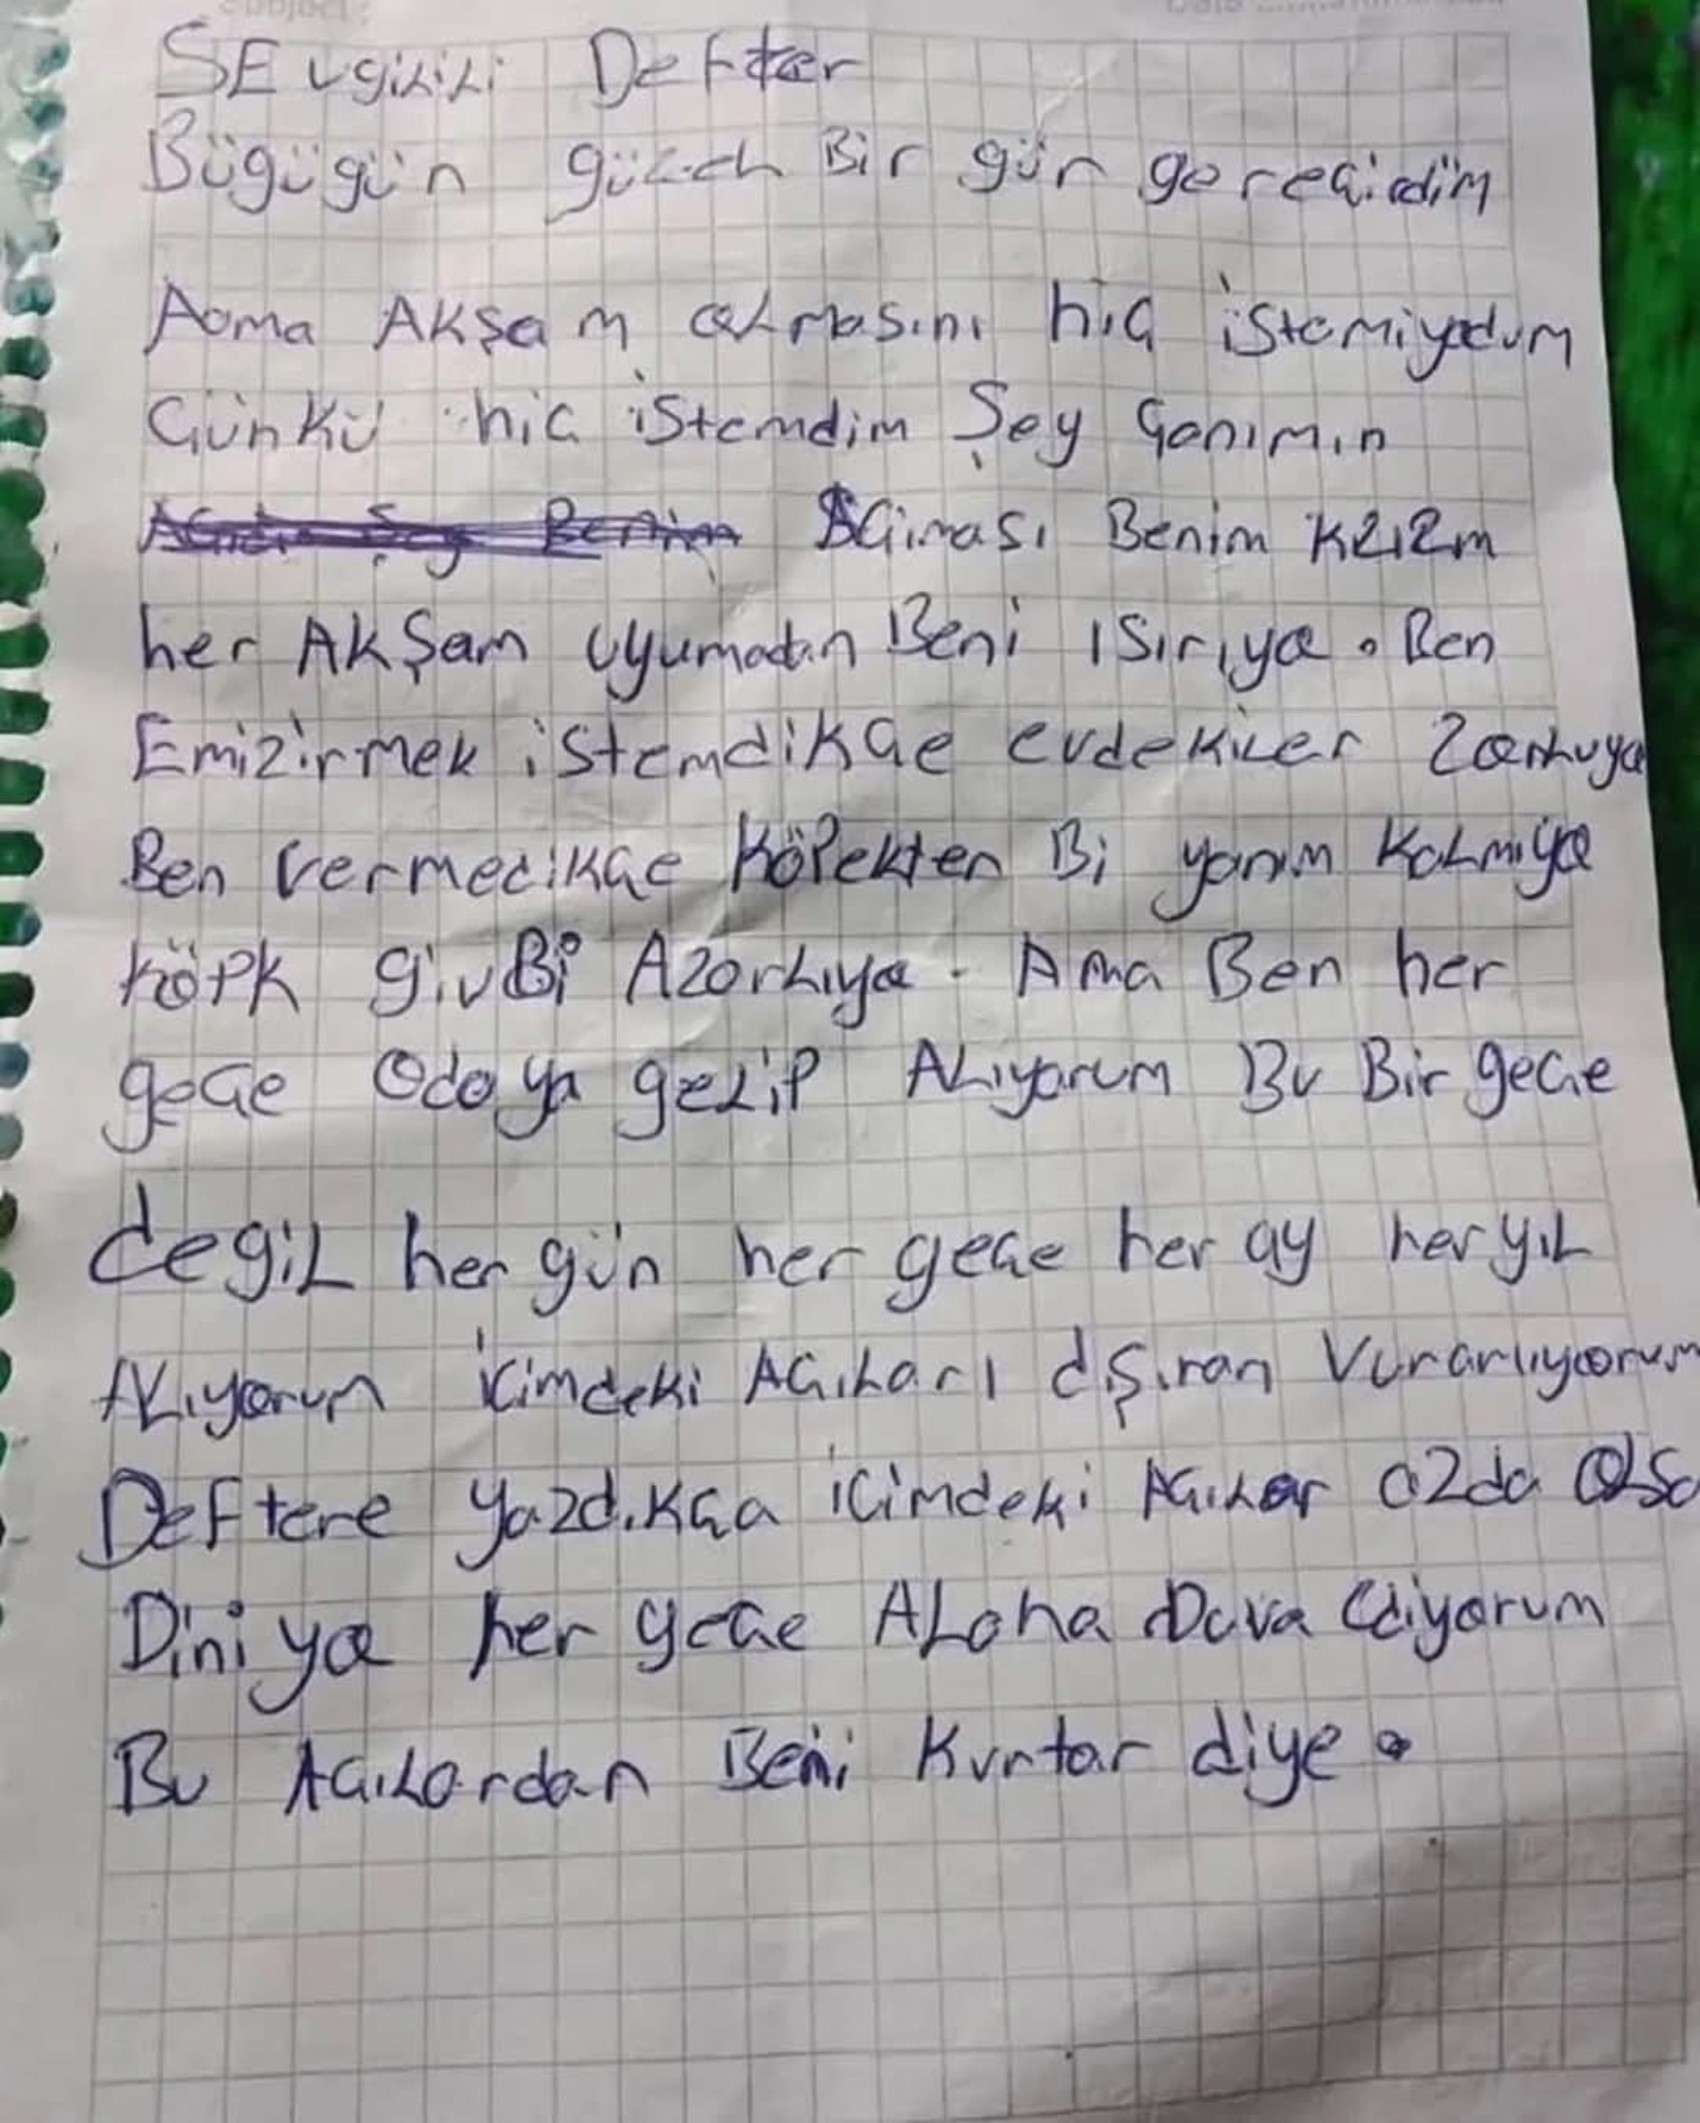 SEvgiLiLi Defter
Bügügün güzel Bir gün gereçirdim
Aoma AKşam oLmasını hiç istemiyodum
Çünkü hiç istemdim Şey Çanımın
AÇıması Benim Kızızm
her AKŞam uyumadan Beni ısırıya. Ben
Emizirmek istemdikçe evdekiler Zorluya
Ben vermedikçe Köpekten Bi yanım KaLmıya
Köpk givBi AzorLıya. Ama Ben her
geÇe Odaya geLip ALıyorum Bu Bir geÇe
değiL her gün her geÇe her ay her yıL
ALıyorum içimdeki AÇıLarı dışıran Vurarlıyorum
Deftere yazdıKça içimdeki AÇıLar azda oLsa
Diniya her geÇe ALaha Duva Ediyorum
Bu AÇıLardan Beni Kurtar diye.